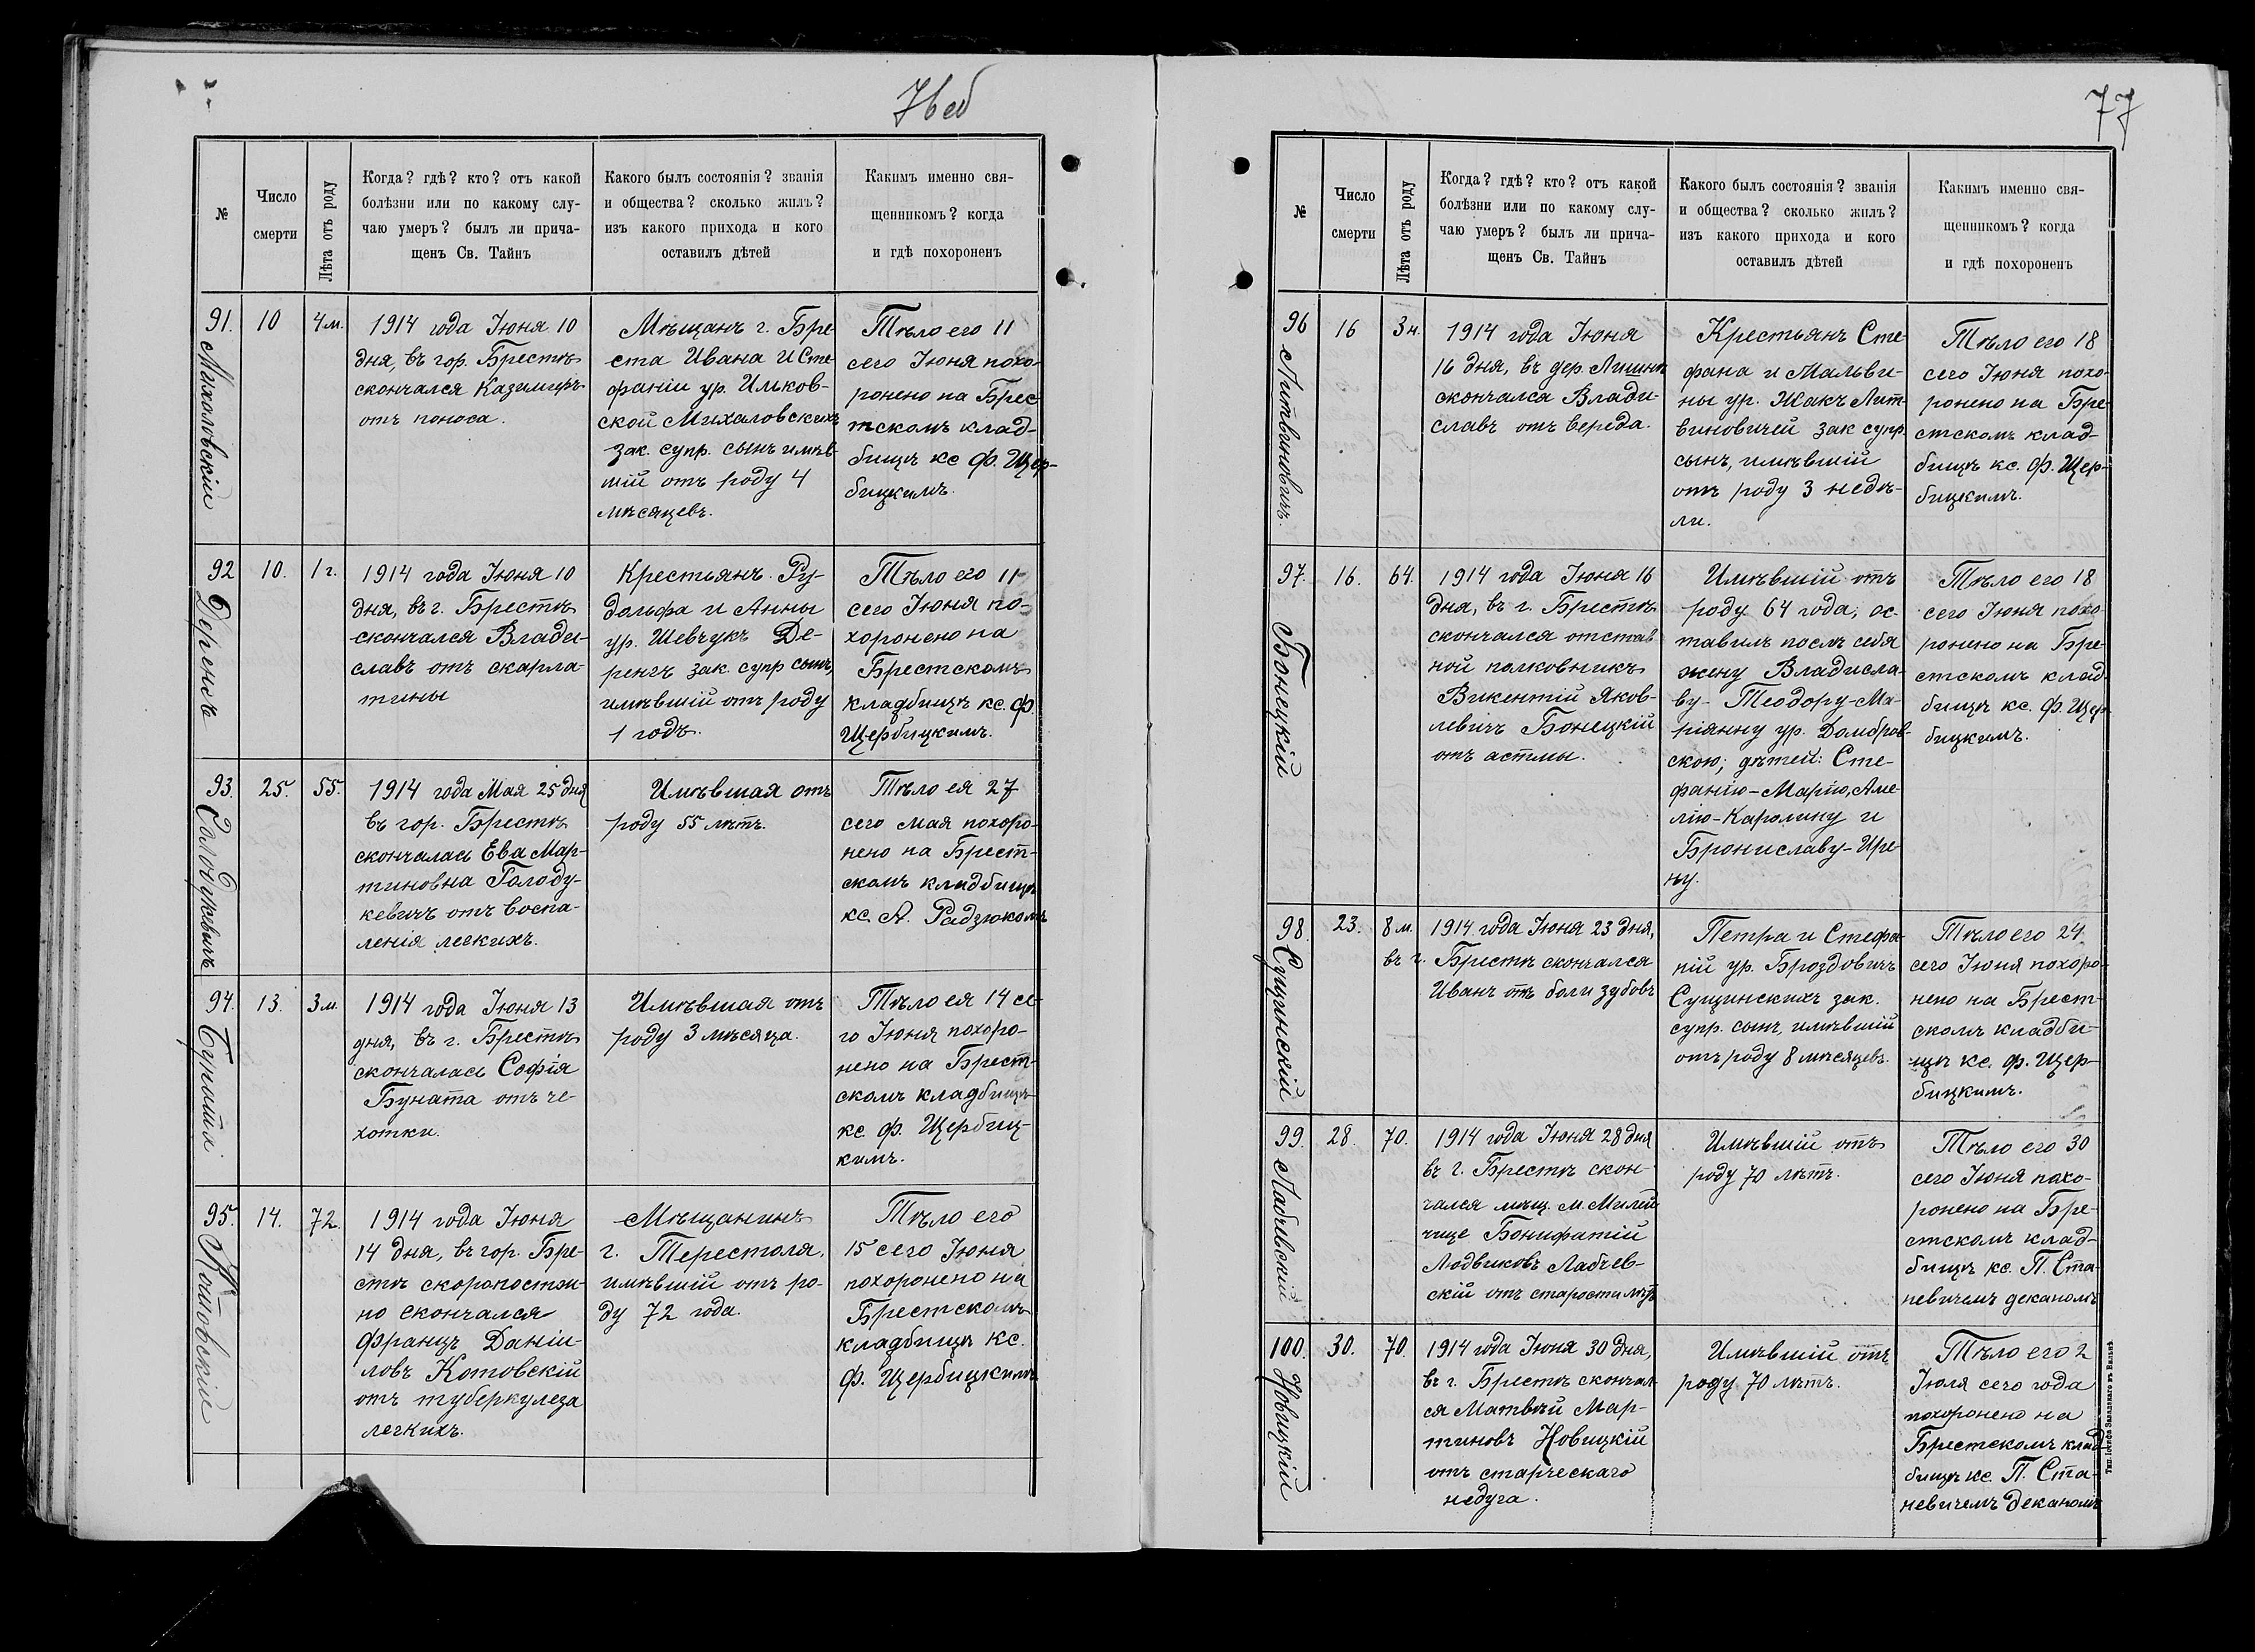 76 об
№
Число
смерти
Лѣта отъ роду
Когда? гдѣ? кто? отъ какой
болѣзни или по какому слу-
чаю умеръ? былъ ли прича-
щенъ Св. Тайнъ
Какого былъ состоянія? званія
и общества? сколько жилъ?
изъ какого прихода и кого
оставилъ дѣтей
Какимъ именно свя-
щенникомъ? когда
и гдѣ похороненъ
91.
Михаловскій
10
4 м.
1914 года Іюня 10
дня, въ гор. Брестѣ
скончался Казимиръ
отъ поноса.
Мѣщанъ г. Бре
ста Ивана и Сте-
фаніи ур. Ильков-
ской Михаловскихъ
зак. супр. сынъ имѣв-
шій отъ роду 4
мѣсяцевъ.
Тѣло его 11
сего Іюня похо-
ронено на Брес
тскомъ клад-
бищѣ кс. Ф. Щер-
бицкимъ.
92
Деренгъ
10.
1 г.
1914 года Іюня 10
дня, въ г. Брестѣ
скончался Влади-
славъ отъ скарла-
тины
Крестьянъ Ру-
дольфа и Анны
ур. Шевчукъ Де-
ренгъ зак. супр сынъ,
имѣвшій отъ роду
1 годъ.
Тѣло его 11
сего Іюня по-
хоронено на
Брестскомъ
кладбищѣ кс. Ф.
Щербицкимъ.
93.
Голодукевичъ
25.
55.
1914 года Мая 25 дня
въ гор. Брестѣ
скончалась Ева Мар-
тиновна Голоду-
кевичъ отъ воспа-
ленія легкихъ.
Имѣвшая отъ
роду 55 лѣтъ.
Тѣло ея 27
сего мая похоро-
нено на Брест-
скомъ кладбищѣ
кс. А. Радзюкомъ
94.
Буната
13.
3 м.
1914 года Іюня 13
дня, въ г. Брестѣ
скончалась Софія
Буната отъ че-
хотки.
Имѣвшая отъ
роду 3 мѣсяца.
Тѣло ея 14 се-
го Іюня похоро-
нено на Брест-
скомъ кладбищѣ
кс. Ф. Щербиц-
кимъ.
95.
Котовскій
14.
72.
1914 года Іюня
14 дня, въ гор. Бре-
стѣ скоропостиж-
но скончался
Францъ Даніи-
ловъ Котовскій
отъ туберкулеза
легкихъ.
Мѣщанинъ
г. Тересполя,
имѣвшій отъ ро-
ду 72 года.
Тѣло его
15 сего Іюня
похоронено на
Брестскомъ
кладбищѣ кс.
Ф. Щербицкимъ
77
№
Число
смерти
Лѣта отъ роду
Когда? гдѣ? кто? отъ какой
болѣзни или по какому слу-
чаю умеръ? былъ ли прича-
щенъ Св. Тайнъ
Какого былъ состоянія? званія
и общества? сколько жилъ?
изъ какого прихода и кого
оставилъ дѣтей
Какимъ именно свя-
щенникомъ? когда
и гдѣ похороненъ
96
Литвиновичъ
16
3 н.
1914 года Іюня
16 дня, въ дер.
скончался Влади-
славъ отъ вереда.
Крестьянъ Сте-
фана и Мальви-
ны ур. Жакъ Лит-
виновичей зак супр.
сынъ, имѣвшій
отъ роду 3 недѣ-
ли.
Тѣло его 18
сего Іюня похо-
ронено на Бре-
стскомъ клад-
бищѣ кс. Ф. Щер-
бицкимъ.
97.
Бонецкій
16.
64.
1914 года Іюня 16
дня, въ г. Брестѣ
скончался отстав
ной полковникъ
Викентій Яков-
левичъ Бонецкій
отъ астмы.
Имѣвшій отъ
роду 64 года, ос-
тавилъ послѣ себя
жену Владисла-
ву-Теодору-Ма-
ріянну ур. Домбров-
скою; дѣтей: Сте-
фанію-Марію, Аме-
лію-Каролину и
Брониславу-Ире-
ну.
Тѣло его 18
сего Іюня похо
ронено на Бре-
стскомъ клад-
бищѣ кс. Ф. Щер
бицкимъ.
98.
Сущинскій
23.
8 м.
1914 года Іюня 23 дня,
въ г. Брестѣ скончался
Иванъ отъ боли зубовъ
Петра и Стефа-
ніи ур. Броздовичъ
Сущинскихъ зак.
супр. сынъ, имѣвшій
отъ роду 8 мѣсяцевъ.
Тѣло его 24
сего Іюня похоро-
нено на Брест-
скомъ кладби-
щѣ кс. Ф. Щер-
бицкимъ.
99.
Лабчевскій
28.
70.
1914 года Іюня 28 дня
въ г. Брестѣ скон-
чался мѣщ. м. Милей-
чице Бонифатій
Людвиковъ Лабчев-
скій отъ старости лѣтъ
Имѣвшій отъ
роду 70 лѣтъ.
Тѣло его 30
сего Іюня похо-
ронено на Бре-
стскомъ клад-
бищѣ кс. П. Ста-
невичемъ деканомъ
100.
Новицкій
30.
70.
1914 года Іюня 30 дня,
въ г. Брестѣ скончал
ся Матвѣй Мар-
тиновъ Новицкій
отъ старческаго
недуга.
Имѣвшій отъ
роду 70 лѣтъ.
Тѣло его 2
Іюля сего года
похоронено на
Брестскомъ клад
бищѣ кс. П. Ста-
невичемъ деканомъ
Тип. Іосифа Завадзкаго въ Вильнѣ